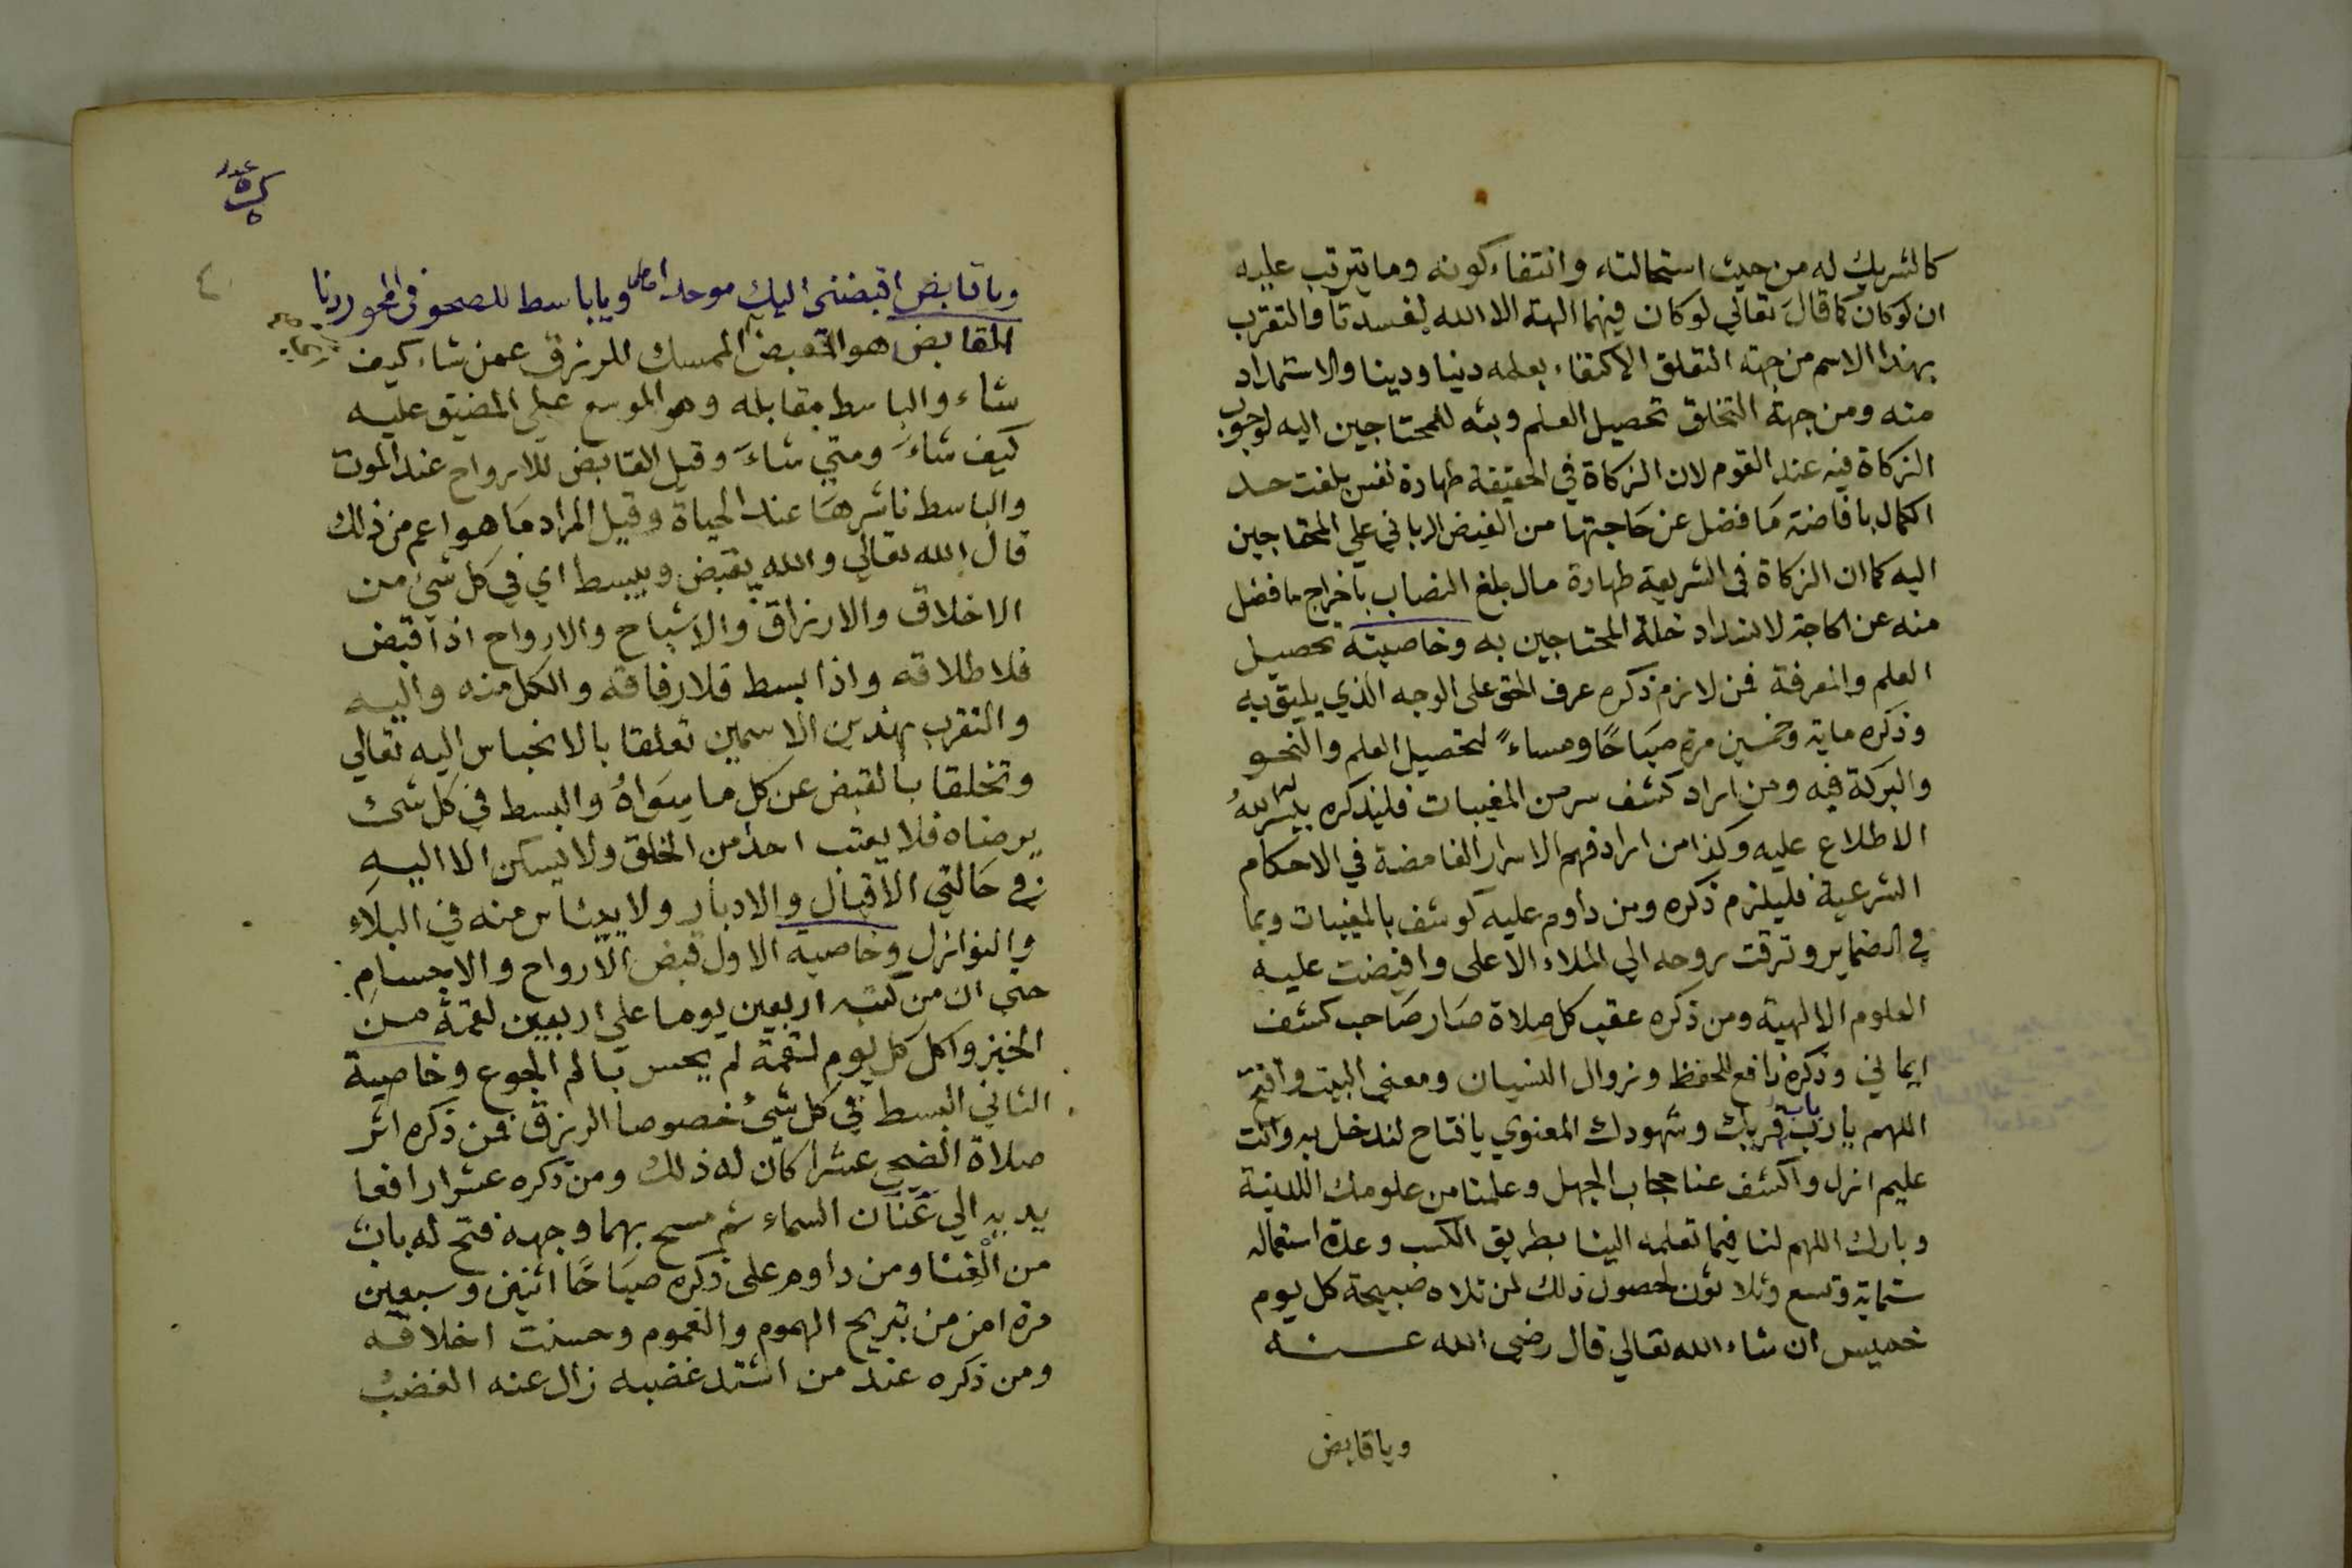 كالشريك له من حيث استحالته وانتفاء كونه وما يترتب عليه
ان لو كان كما قال تعالي لو كان فيهما الهة الا الله لفسدتا والتقرب
بهذا الاسم من جهة التعلق الاكتفاء بعلمه دينا ودنيا والاستمداد
منه ومن جهة التخلق تحصيل العلم وبثه للمحتاجين اليه لوجوب
الزكاة فيه عند القوم لان الزكاة في الحقيقة طهارة نفس بلغت حد
الكمال بافاضة ما فضل عن حاجتها من الفيض الرباني علي المحتاجين
اليه كما ان الزكاة في الشريعة طهارة مال بلغ النصاب باخراج ما فضل
منه عن الحاجة لانسداد خلة المحتاجين به وخاصيته تحصيل
العلم والمعرفة فمن لازم ذكره عرف الحق على الوجه الذي يليق به
وذكره ماية وخمسين مرة صباحًا ومساءً لتحصيل العلم والنحو
والبركة فيه ومن اراد كشف سر من المغيبات فليذكره ييسر الله
الاطلاع عليه وكذا من اراد فهم الاسرار الغامضة في الاحكام
الشرعية فليلزم ذكره ومن داوم عليه كوشف بالمغيبات وبما
في الضماير وترقت روحه الي الملاء الاعلى وافيضت عليه
العلوم الالهية ومن ذكره عقب كل صلاة صار صاحب كشف
ايماني وذكره نافع للحفظ وزوال النسيان ومعنى البيت وافتح
اللهم يا رب باب قربك وشهودك المعنوي يا فتاح لندخل به وانت
عليم ازل واكشف عنا حجاب الجهل وعلمنا من علومك اللدنية
وبارك اللهم لنا فيما تعلمه الينا بطريق الكسب وعدة استعماله
ستماية وتسع وثلاثون لحصول ذلك لمن تلاه صبيحة كل يوم
خميس ان شاء الله تعالي قال رضي الله عنه
ويا قابض
عدد
٤
ويا قابض اقبضني اليك موحدا ويا باسط للصحو في المحو ردنا
القابض هو الممسك للرزق عمن شاء كيف
شاء والباسط مقابله وهو الموسع علي المضيق عليه
كيف شاء ومتي شاء وقيل القابض للارواح عند الموت
والباسط ناشرها عند الحياة وقيل المراد ما هو اعم من ذلك
قال الله تعالي والله يقبض ويبسط اي في كل شيء من
الاخلاق والارزاق والاشباح والارواح اذا قبض
فلا طلاقه واذا بسط فلا رفاقه والكل منه واليه
والتقرب بهذين الاسمين تعلقا بالانحباس اليه تعالي
وتخلقا بالقبض عن كل ما سواهُ والبسط في كل شئ
يرضاه فلا يعتب احد من الخلق ولا يسكن الا اليه
في حالتي الاقبال والادبار ولا ييئاس منه في البلاء
والنوازل وخاصية الاول قبض الارواح والاجسام
حتي ان من كتبه اربعين يوما علي اربعين لقمة من
الخبز واكل كل يوم لقمة لم يحس بالم الجوع وخاصية
الثاني البسط في كل شئ خصوصا الرزق فمن ذكره اثر
صلاة الضحي عشرا كان له ذلك ومن ذكره عشرا رافعا
يديه الي عنان السماء ثم مسح بهما وجهه فتح له باب
من الغنا ومن داوم على ذكره صباحًا اثنين وسبعين
مرة امن من تبريح الهموم والغموم وحسنت اخلاقه
ومن ذكره عند من اشتد غضبه زال عنه الغضب